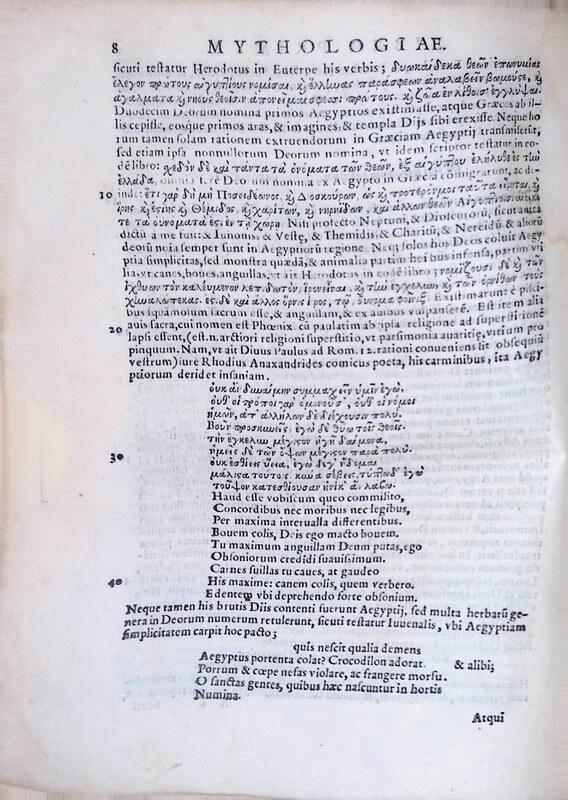 8 MYTHOLOGIAE.
sicuti testatur Herodotus in Euterpe his verbis; δυωκαίδεκα θεῶν ἐπωνυμίας
ἔλεγον πρώτους αἰγυπτίους νομίσαι, καὶ ἕλληνας παρὰ σφέων ἀναλαβεῖν βωμούς τε, καὶ
ἀγάλματα καὶ νηοὺς θεοῖσιν ἀπονεῖμαι σφέας πρώτους. καὶ ζῶα ἐν λίθοισι ἐγγλύψαι.
Duodecim Deorum nomina primos Aegyptios existimasse, atque Græcos ab il-
lis cepisse, eosque primos aras, & imagines, & templa Dijs sibi erexisse. Neque ho
rum tamen solam rationem extruendorum in Græciam Aegyptij transmiserūt,
sed etiam ipsa nonnullorum Deorum nomina, vt idem scriptor testatur in eo-
dē libro: χεδὸν δὲ καὶ πάντα τὰ ὀνόματα τῶν θεῶν, ἐξ αἰγύπτου ἐλήλυθε ἐς τὴν
ἑλλάδα, omnia ferè Deorum nomina ex Aegypto in Græcia cōmigrarunt, ac de-
10 inde: ἔτι γὰρ δὴ μὴ Ποσειδέωνος, καὶ Διοσκούρων, ὡς καὶ πρότερόν μοι ταῦτα εἴρηται, καὶ
ἥρης καὶ ἑστίης καὶ Θέμιδος, καὶ χαρίτων, καὶ νηρηίδων, καὶ ἄλλων θεῶν Αἰγυπτίοισι
τε τὰ οὐνόματά ἐςι ἐν τῇ χώρῃ. Nisi profecto Neptuni, & Dioscurorū, sicut antea
dictū à me fuit: & Iunonis, & Vestę, & Themidis, & Charitū, & Nereidū & aliorū
deorū noīa semper sunt in Aegyptiorū regione. Neq; solos hos Deos coluit Aegy
ptia simplicitas, sed monstra quædā, & animalia partim
lia, vt canes, boues, anguillas, vt ait Herodotus in eodē libro; νομίζουσι δὲ καὶ τῶν
ἰχθύων τὸν καλεύμενον λεπιδωτὸν, ἱρὸν εἶναι, καὶ τὴν ἔγχελυν καὶ τῶν ὀρνίθων τοὺς
χηναλώπεκας. ἔςι δὲ καὶ ἄλλος ὄρνις ἱρὸς, τῷ οὔνομα φοῖνιξ. Existimarunt è pisci-
bus squamosum sacrum esse, & anguillam, & ex auibus vulpanserē. Est item alia
20 auis sacra, cui nomen est Phœnix. cū paulatim ab ipsa religione ad superstitionē
lapsi essent, (est.n. arctiori religioni superstitio, vt parsimonia auaritię, vitium pro
pinquum. Nam, vt ait Diuus Paulus ad Rom. 12. rationi conueniens sit obsequiū
vestrum) iure Rhodius Anaxandrides comicus poeta, his carminibus, ita Aegy
ptiorum deridet insaniam.
οὐκ ἂν δυναίμην συμμαχεῖν ὑμῖν ἐγώ.
οὔθ᾽ οἱ τρόποι γὰρ ὁμονοῦσ᾽, οὔθ᾽ οἱ νόμοι
ἡμῶν, ἀπ᾽ ἀλλήλων δὲ διέχουσιν πολύ.
Βοῦν προσκυνεῖς, ἐγὼ δὲ θύω τοῖς θεοῖς.
τὴν ἔγχελυν μέγιςον ἡγῇ δαίμονα,
30 ἡμεῖς δὲ τῶν ὄψων μέγιςον παρὰ πολύ.
οὐκ ἐσθίεις ὕεια, ἐγὼ δέ γ᾽ ἥδομαι
μάλιςα τούτοις. κύνα σέβεις, τύπτω δ᾽ ἐγὼ
τοὖψον κατεσθίουσαν ἡνίκ᾽ ἂν λάβω.
Haud esse vobiscum queo commilito,
Concordibus nec moribus nec legibus,
Per maxima interualla differentibus.
Bouem colis, Deis ego macto bouem.
Tu maximum anguillam Deum putas, ego
Obsoniorum credidi suauissimum.
Carnes suillas tu caues, at gaudeo
40 His maxime: canem colis, quem verbero.
Edentem vbi deprehendo forte obsonium.
Neque tamen his brutis Diis contenti fuerunt Aegyptij, sed multa herbarū ge-
nera in Deorum numerum retulerunt, sicuti testatur Iuuenalis, vbi Aegyptiam
simplicitatem carpit hoc pacto;
quis nescit qualia demens
Aegyptus portenta colat? Crocodilon adorat. & alibi;
Porrum & cœpe nefas violare, ac frangere morsu.
O sanctas gentes, quibus hæc nascuntur in hortis
Numina.
Atqui